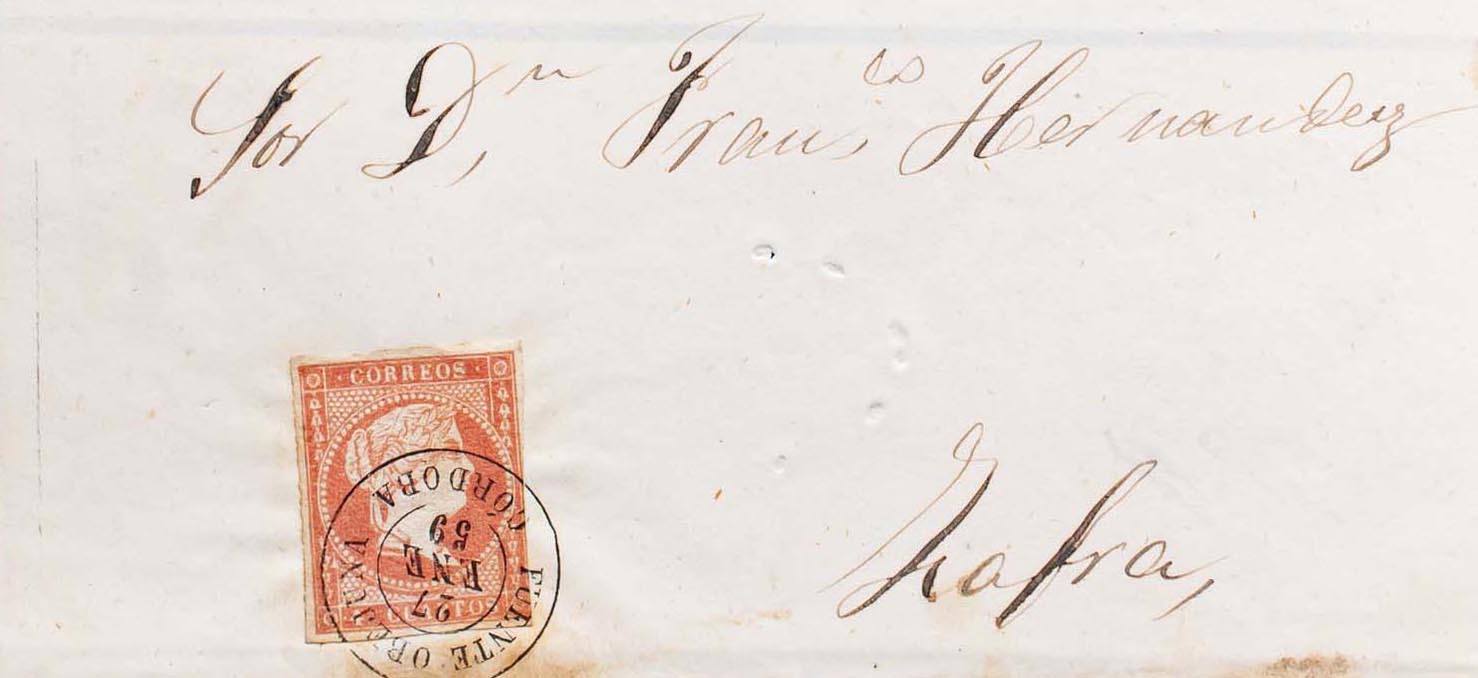 Sor Dn, Francs, Hernandez
CORREOS
CORDOBA
59
ENE
27
FUENTE OBEJUNA
CUATOS
Zafra,